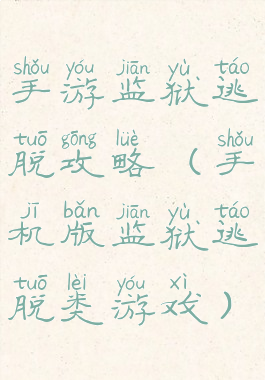 shǒu yóu jiān yù táo
手游监狱逃
tuō gōng lüè shǒu
脱攻略（手
jī bǎn jiān yù táo
机版监狱逃
tuō lèi yóu xì
脱类游戏）